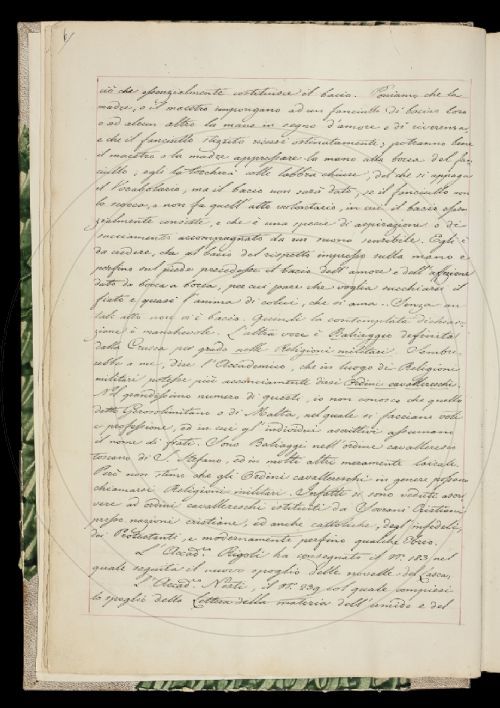 6
ciò che essenzialmente costituisce il bacio. Poniamo che la
madre, o il maestro impongano ad un fanciullo di baciar loro
o ad alcun altro la mano in segno d'amore o di riverenza,
e che il fanciullo ricusi ostinatamente; potranno bene
il maestro o la madre appressare la mano alla bocca del fan
ciullo; egli la toccherà colle labbra chiuse, del che si appaga
il Vocabolario, ma il bacio non sarà dato, se il fanciullo non
lo scocca, e non fa quell'atto volontario, in cui il bacio essen
zialmente consiste, e che è una specie di aspirazione o di
succiamento accompagnato da un suono sensibile. Egli è
da credere, che al bacio del rispetto impresso sulla mano e
persino sul piede precedesse il bacio dell'amore e dell'affezione
dato da bocca a bocca, per cui pare che voglia succhiarsi il
fiato e quasi l'anima di colui, che si ama. Senza un
tale atto non vi è bacio. Quindi la contemplata dichiara-
zione è manchevole. L'altra voce è Baliaggio definita
dalla Crusca per grado nelle Religioni militari. Sembre-
rebbe a me, disse l'Accademico, che in luogo di Religioni
militari potesse più acconciamente dirsi Ordini cavallereschi.
Nel grandissimo numero di questi, io non conosco che quello
detto Gerosolimitano o di Malta, nel quale si facciano voti
e professione, ed in cui gl'individui ascritti assumano
il nome di frati. Sono Baliaggi nell'ordine cavalleresco
toscano di S. Stefano, ed in molti altri meramente laicali.
Però non stimo che gli Ordini cavallereschi in genere possano
chiamarsi Religioni militari. Infatti si sono veduti ascri
vere ad ordini cavallereschi istituiti da Sovrani Cristiani
presso nazioni cristiane, ed anche cattoliche, degl'infedeli,
dei Protestanti, e modernamente perfino qualche Turco.
L'Accad.º Rigoli ha consegnato il N. 183, nel
quale seguita il nuovo spoglio delle novelle del Lasca.
L'Accad.º Nesti, il N. 239 col quale compiesi
lo spoglio della Lettera della materia dell'umido e del